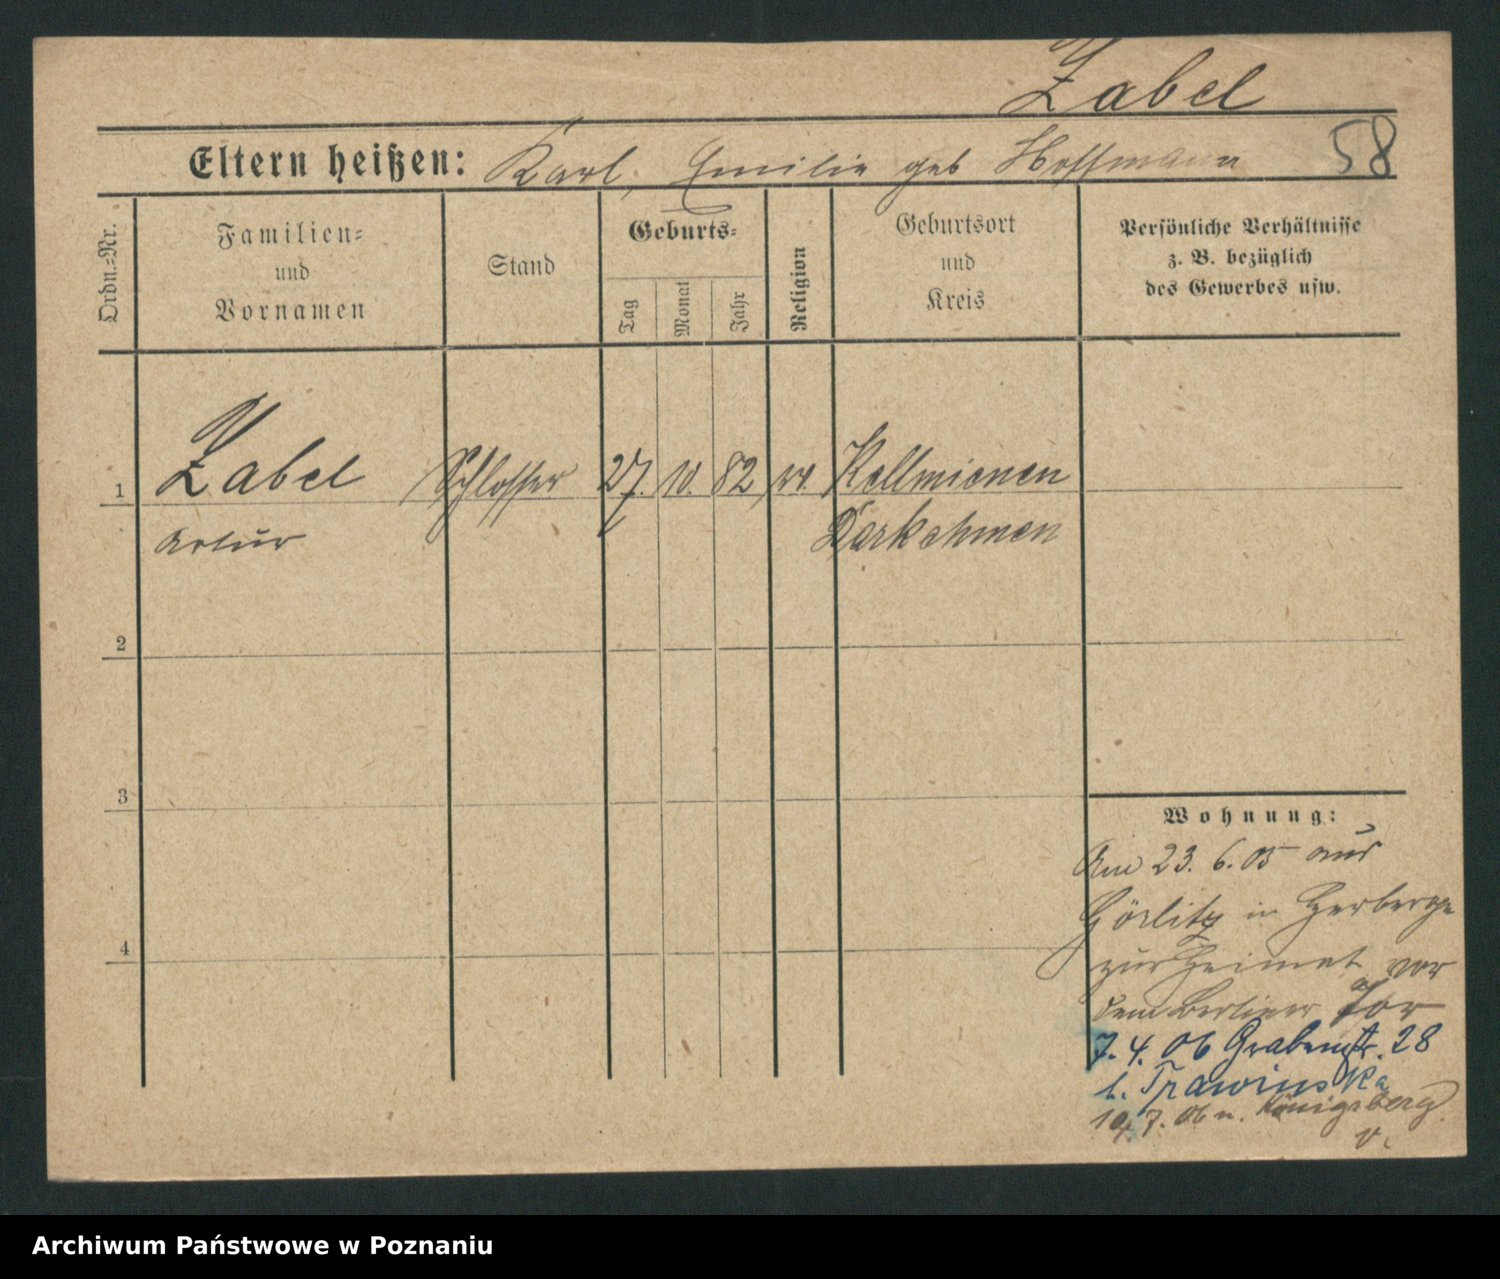 Zabel
Eltern heißen: Karl, Emilie geb Hoffmann 58
Ordn.-Nr.
Familien-
und
Vornamen
Stand
Geburts-
Tag
Monat
Jahr
Religion
Geburtsort
und
Kreis
Persönliche Verhältnisse
z. B. bezüglich
des Gewerbes usw.
1 Zabel Schlosser 27. 10. 82 ev. Kellmienen
Artur Darkehmen
2
3
4
Wohnung:
Am 23. 6. 05 aus
Görlitz in Herberge
zur Heimat vor
dem Berliner Tor
7. 4. 06 Grabenstr. 28
b. Trawinska
7. 06 n. Königsberg
v.
Archiwum Państwowe w Poznaniu